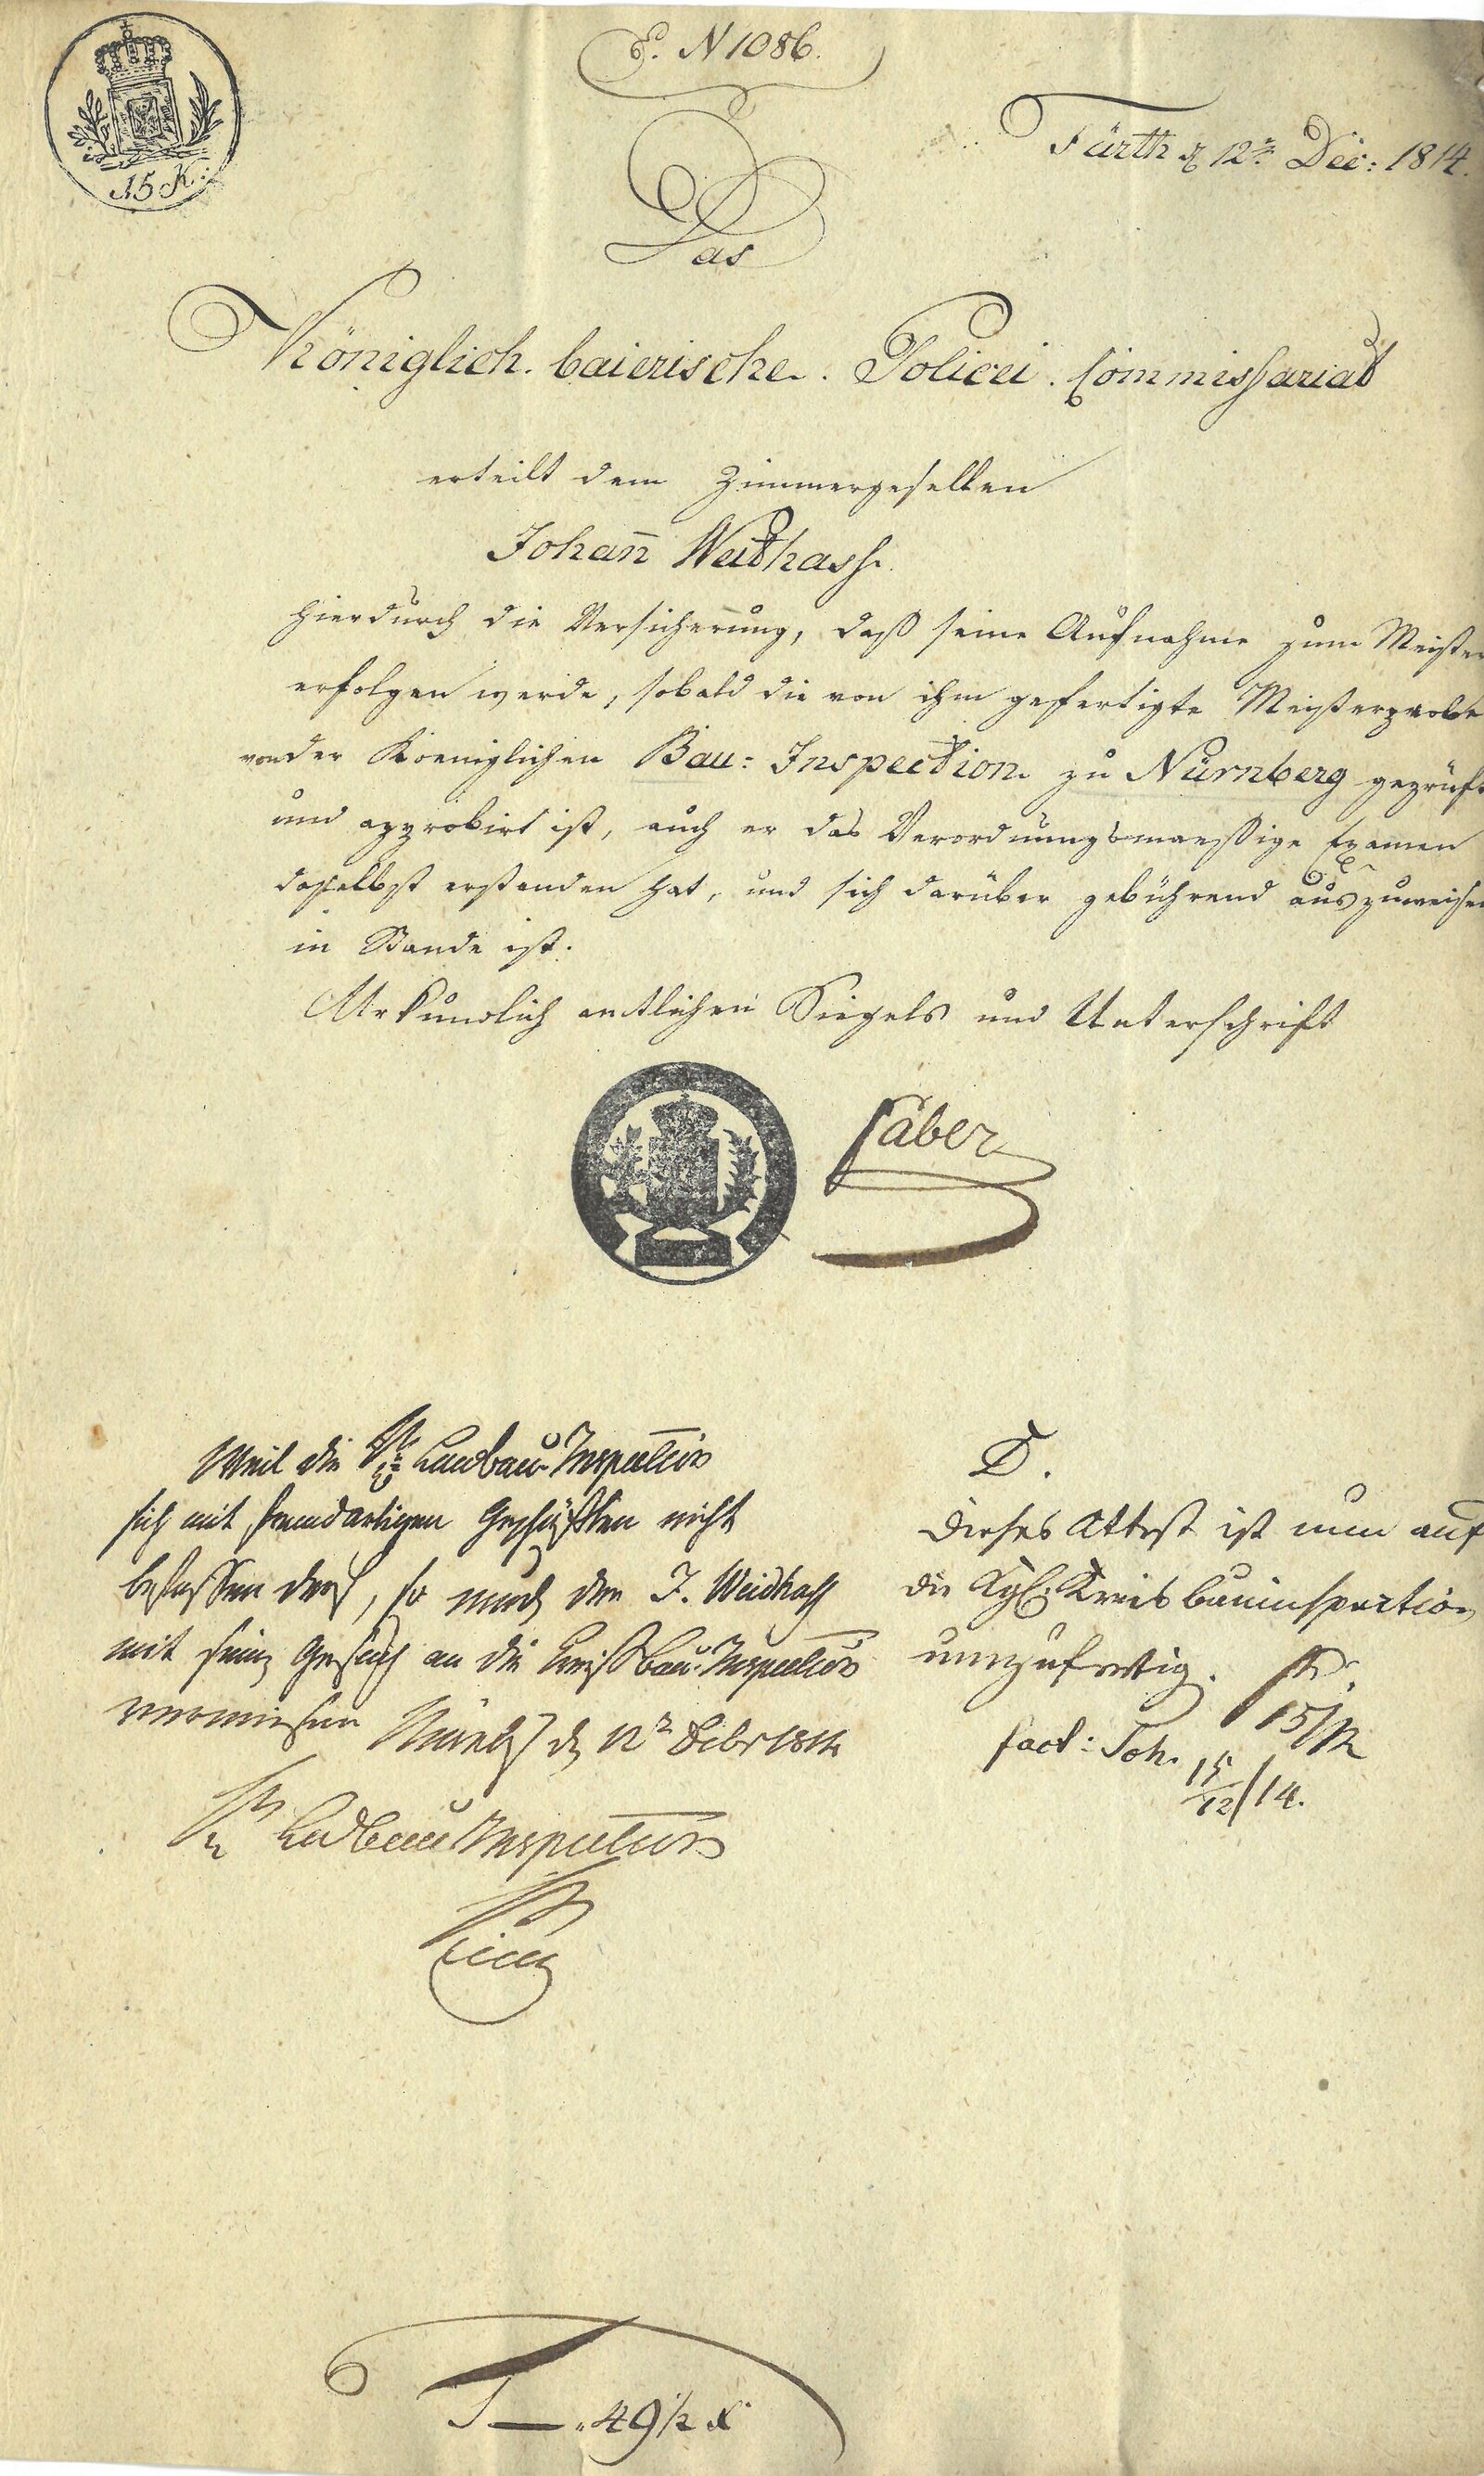 E. N 1086.
15 K.
Fürth d 12n Dec: 1814.
Das
Königlich. baierische. Policei. Commissariat
erteilt dem Zimmergesellen
Johan̄ Weithass.
hierdurch die Versicherung, daß seine Aufnahme zum Meister
erfolgen werde, sobald die von ihm gefertigte Meisterprobe
von der Koeniglichen Bau: Inspection zu Nürnberg geprüft
und approbirt ist, auch er das Verordnungsmaessige Examen
daselbst erstanden hat, und sich darüber gebührend auszuweisen
in Stande ist.
Urkundlich amtlichen Siegels und Unterschrift
Faber
Weil die Landbau-Inspection
sich mit fremdartigen Geschäften nicht
befassen darf, so wird der J. Weidhass
mit seinem Gesuch an die Kreißbau-Inspection
verwiesen d 12n Decbr 1814
Landbau Inspection
D.
Dieses Attest ist nun auf
die Kgl. Kreisbauinspection
umzufertig.
15/12
fact: Joh. 15/12/14.
T — „ 49 1/2 x